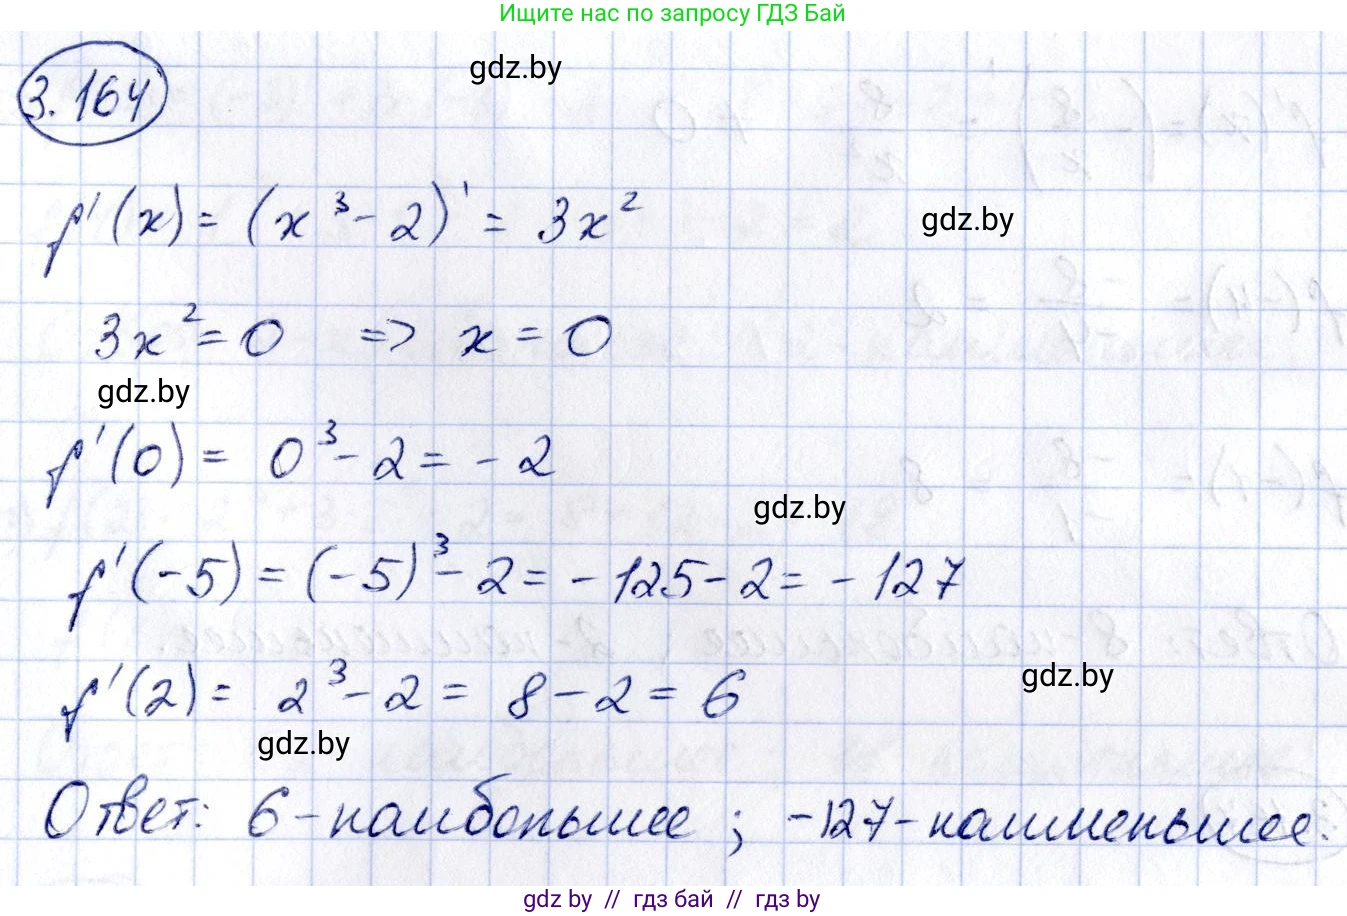 Ищите нас по запросу ГДЗ Бай
3.164
gdz.by
f'(x) = (x³ - 2)' = 3x²
gdz.by
3x² = 0 => x = 0
gdz.by
f'(0) = 0³ - 2 = - 2
gdz.by
f'(-5) = (-5)³ - 2 = - 125 - 2 = - 127
f'(2) = 2³ - 2 = 8 - 2 = 6
gdz.by
gdz.by
Ответ: 6 - наибольшее ; -127 - наименьшее.
gdz.by // гдз бай // гдз by